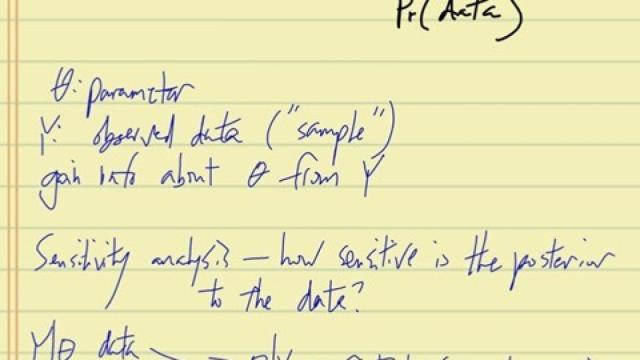 Pr(data)
θ: parameter
Y: observed data ("sample")
gain info about θ from Y
Sensitivity analysis — how sensitive is the posterior
to the data?
data